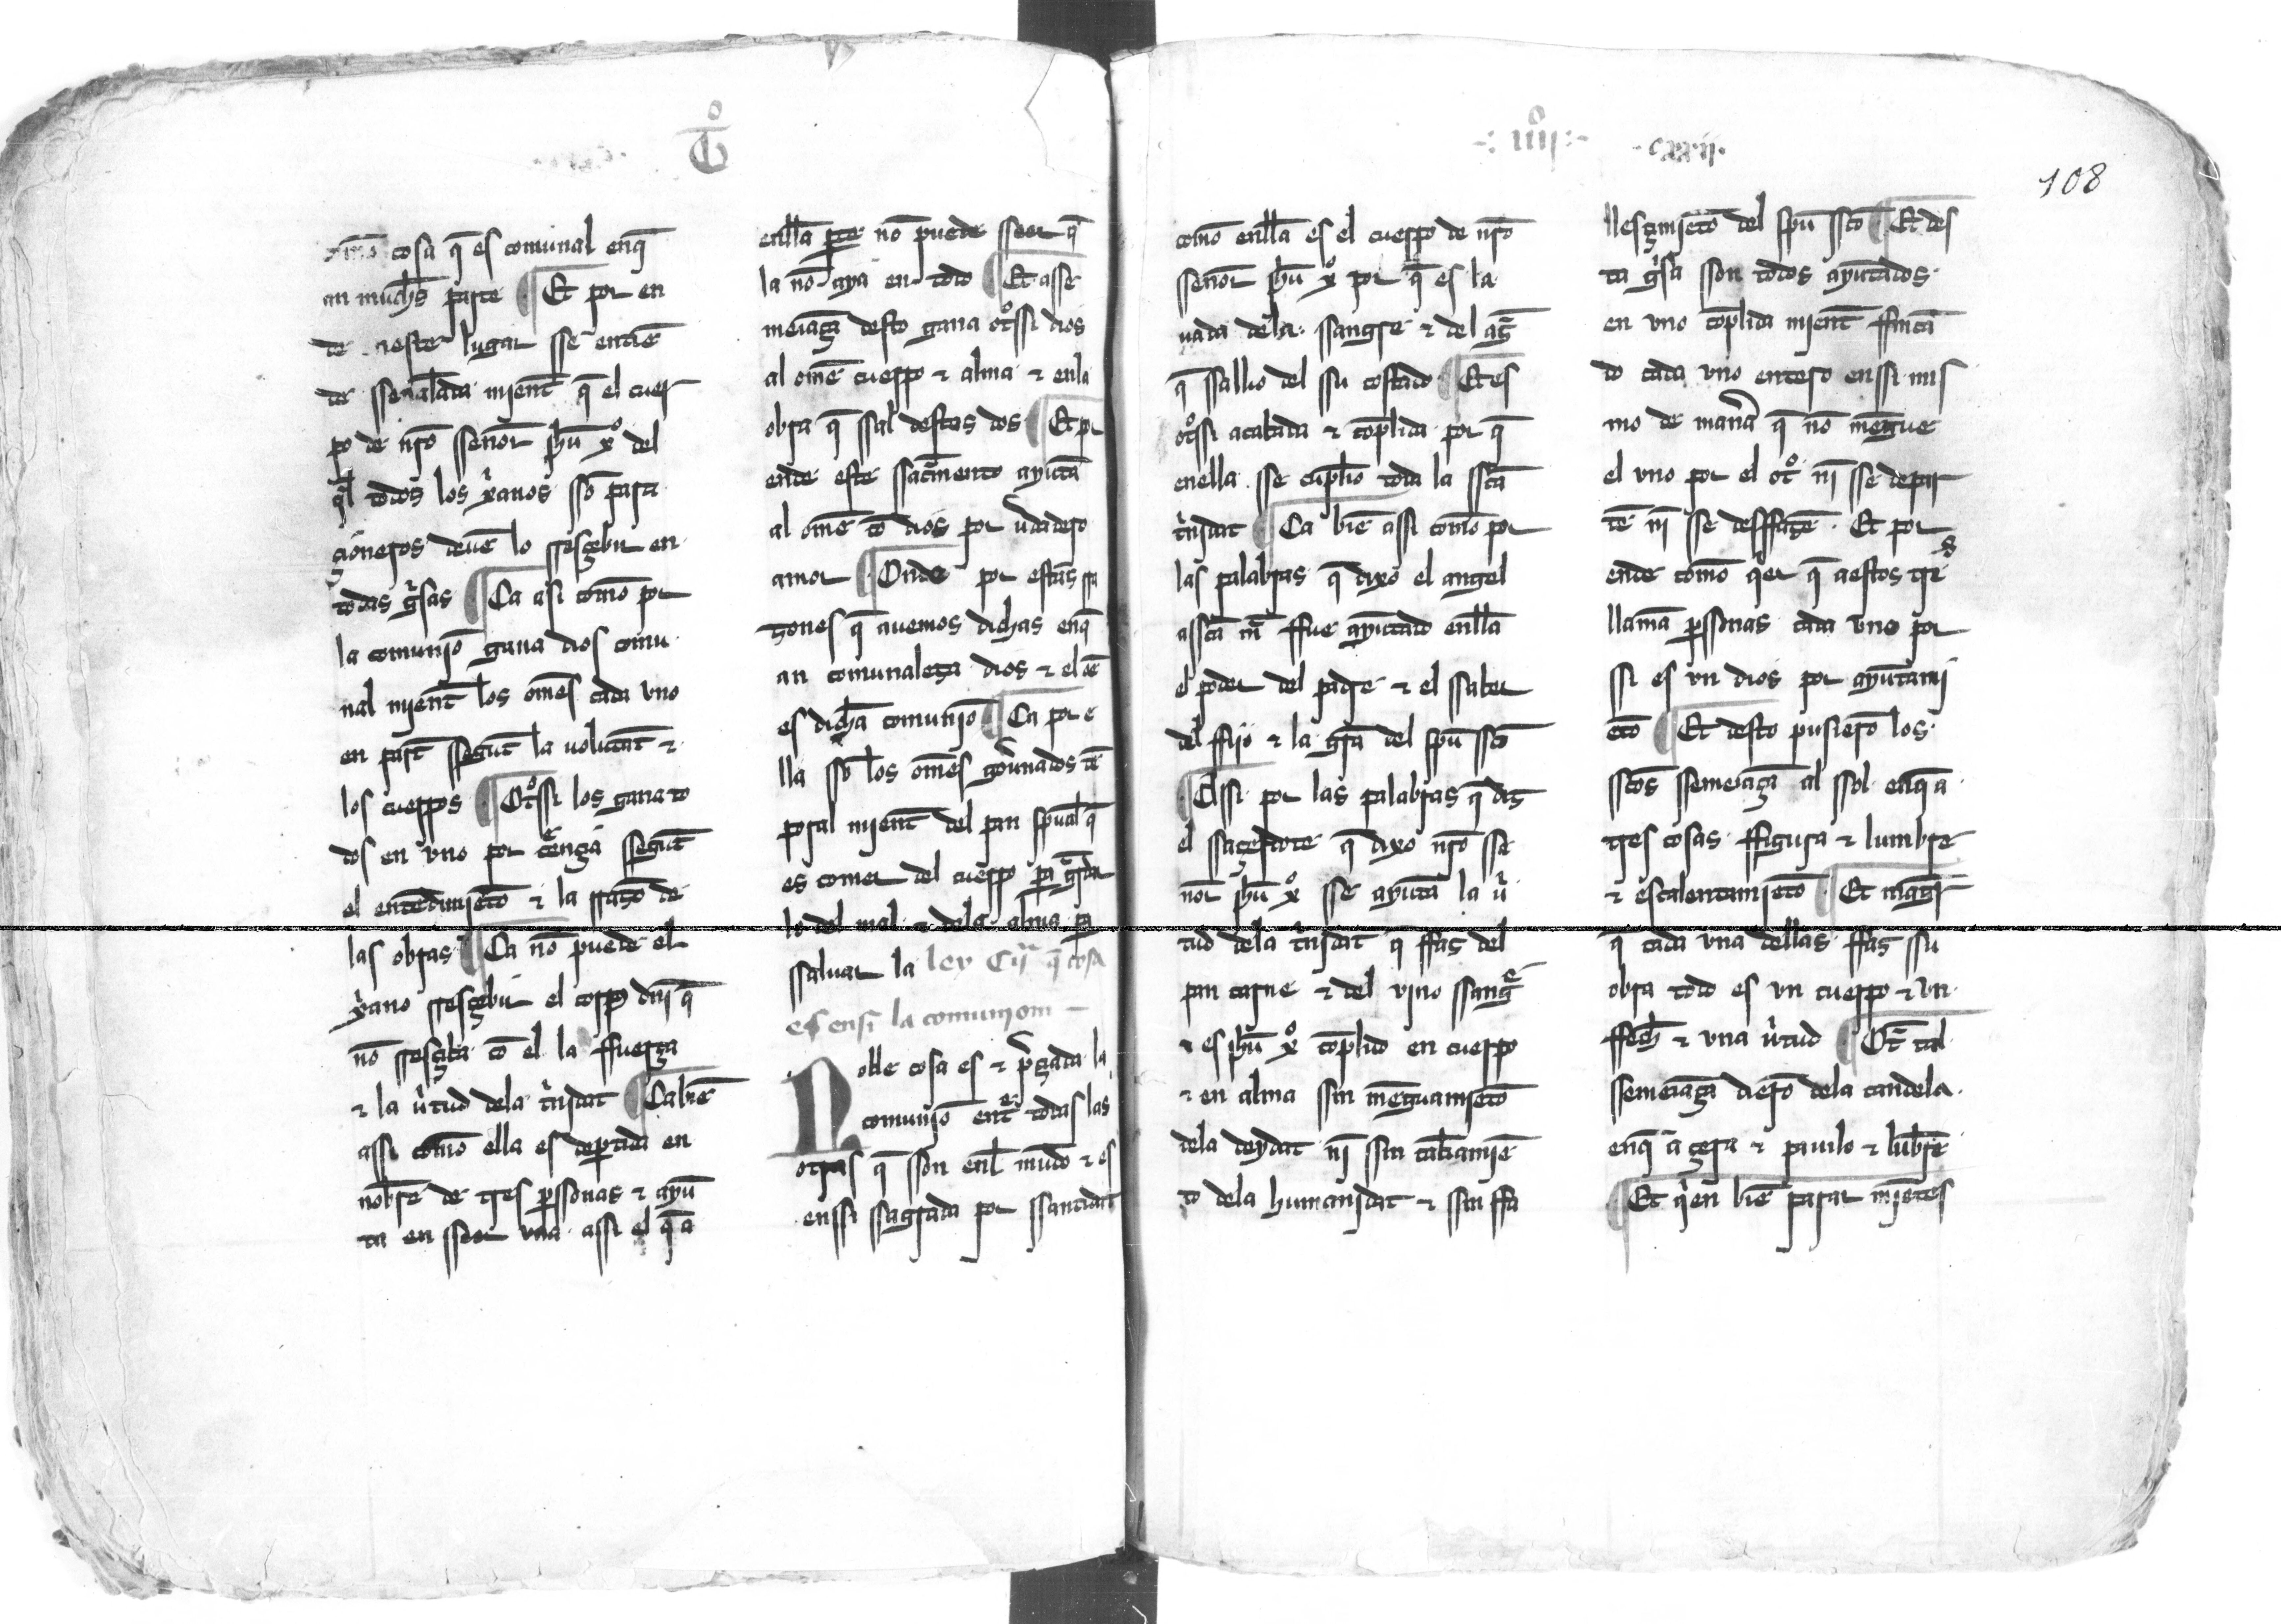 Tͦ
como cosa q̄ es comunal enq̄
an much̄s parte ¶ Et por en
de eneste lugar sse entiē
de ssenalada mient̄ q̄ el cuer
po de nr̄o ssenor ih̄u xͦ del
q̄l todos los xānos ssō para
çioneros deuē lo rresçebir en
todas gⁱsas ¶ Ca asi como por
la comuniō gana dios comu
nal mient̄ los omēs cada vno
en part̄ ssegūt la uolūtat ⁊
los cuerpos ¶ Otͦssi los gana to
dos en vno por cēnçia ssegūt
el entēdimiēto ⁊ la rrazō de
las obras ¶ Ca nō puede el
xāno rresçebir el corpꝰ dn̄i q̄
nō rresçiba cō el la ffuerça
⁊ la uⁱtud dela tⁱnidat ¶ Ca biē
assi como ella es depar̄tida en
nōbre de tres per̄ssonas ⁊ ayū
ta en sseer vna assi el q̄ a
enlla parte nō puede sseer q̄
la nō aya en todo ¶ Et asse
meiāça desto gana otͦssi dios
al omē cuerpo ⁊ alma ⁊ enla
obra q̄ ssal destas dos ¶ Et por
ende este ssacͣmento ayūta
al omē cō dios por uʼdadero
amor ¶ Onde por estas rra
zones q̄ auemos dichas enq̄
an comunaleza dios ⁊ el oē
es dicha comuniō ¶ Ca por e
lla ssō los omēs gouʼnados tē
poral mient̄ del pan sp̄ual q̄
es comer del cuerpo pa gͣrdar
lo del mal ⁊ dela alma pa
ssaluar la ley Cijͣ q̄ cosa
es ensi la comunion
Noble cosa es ⁊ pⁱçiada la
comuniō entͤ todas las
otras q̄ sson enl̄ mūdo ⁊ es
enssi ssagrada por ssantidat
·: iiijͦ :· ·cxxii·
108
como enlla es el cuerpo de nr̄o
ssenor ih̄u xͦ por q̄ es la
uada dela ssangre ⁊ del agͣ
q̄ ssallio del su costado ¶ Et es
otͦssi acabada ⁊ cōplida por q̄
enella sse cūplio toda la ssc̄a
tⁱnidat ¶ Ca biē assi como por
las palabras q̄ dixo el angel
assc̄a mͣ ffue ayūtado enlla
el poder del padre ⁊ el ssaber
del ffijo ⁊ la grā del sp̄u ssc̄o
¶ Assi por las palabras q̄ diz
el ssaçerdote q̄ dixo nr̄o sse
nor ih̄u xͦ sse ayūta la uⁱ
tud dela tⁱnidat q̄ ffaz del
pan carne ⁊ del vino ssangͤ
⁊ es ih̄u xͦ cōplido en cuerpo
⁊ en alma ssin mēguamiēto
dela deydat ni ssin cābiamiē
to dela humanidat ⁊ ssin ffa
llesçimiēto del sp̄u ssc̄o ¶ Et des
ta gⁱsa sson todos ayūtados
en vno cōplida mient̄ ffincā
do cada vno entero enssi mis
mo de manͣa q̄ nō mēgue
el vno por el otͦ ni sse depar
tē ni sse desffazē Et por
ende como qⁱer q̄ aestos treˢ
llamā per̄ssonas cada vno por
ssi es vn dios por ayūtami
ēto ¶ Et desto pusierō los
ssc̄os ssemeiāça al ssol enq̄ a
tres cosas ffigura ⁊ lumbre
⁊ escalentamiēto ¶ Et mager
q̄ cada vna dellas ffaz ssu
obra todo es vn cuerpo ⁊ vn
ffech̄ ⁊ vna uⁱtud ¶ Otͣ tal
ssemeiāça dierō dela candela
enq̄ a çera ⁊ pauilo ⁊ lūbre
¶ Et qⁱen biē parar miētes